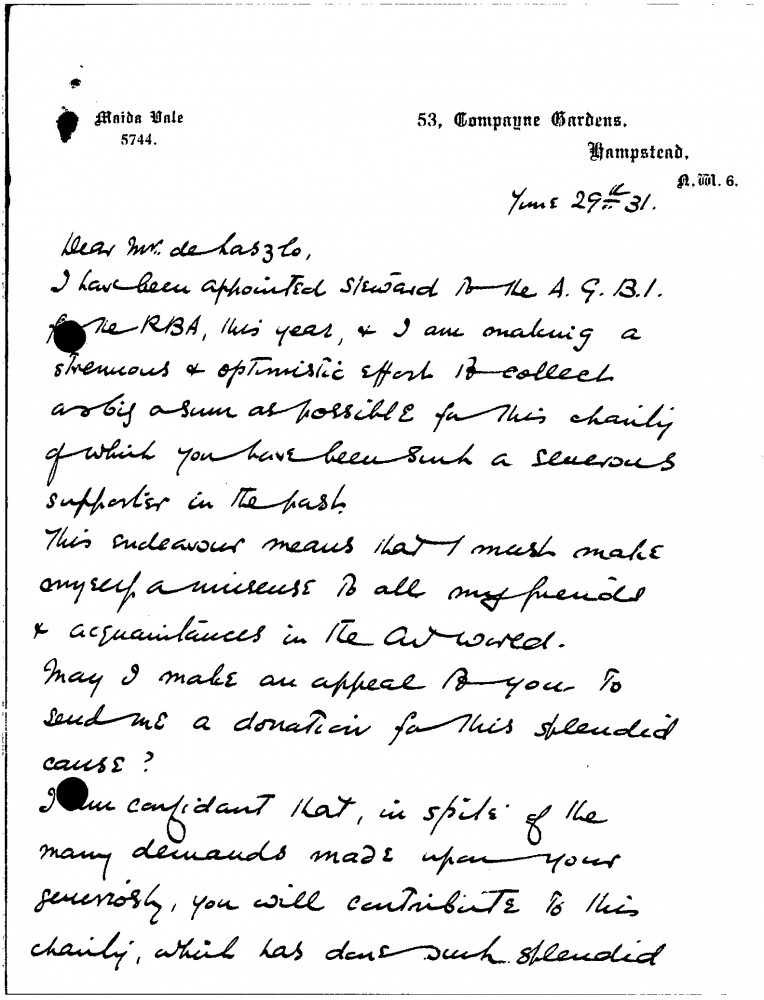 Maida Vale
5744.
53, Compayne Gardens.
Hampstead.
N.W. 6.
June 29th 31.
Dear Mr. de Laszlo,
I have been appointed steward to the A. G. B. I.
the RBA, this year, & I am making a
strenuous & optimistic effort to collect
as big a sum as possible for this charity
of which you have been such a generous
supporter in the past.
This endeavour means that I must make
myself a nuisense to all my friends
& acquaintances in the Art World.
May I make an appeal to you to
send me a donation for this splendid
cause?
I am confidant that, in spite of the
many demands made upon your
generiosty, you will contribute to this
charity, which has done such splendid